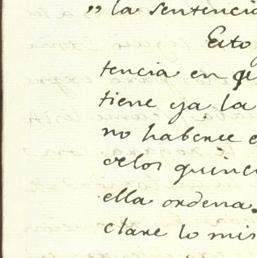 „ la sentencia
Esto
tencia en q
tiene ya la
no haberse e
celos quince
ella ordena.
clare lo mis